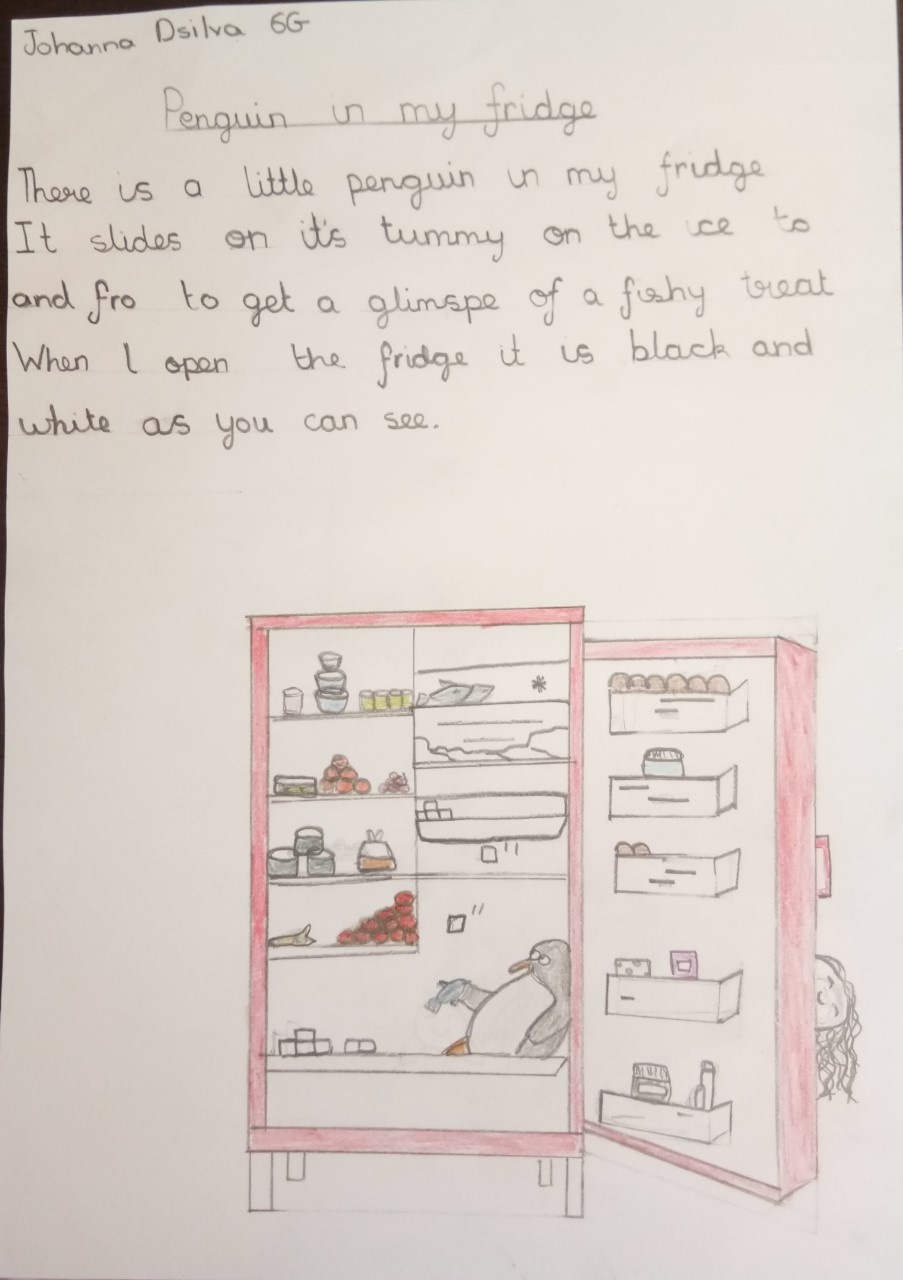 Johanna Dsilva 6G
Penguin in my fridge
There is a little penguin in my fridge
It slides on it's tummy on the ice to
and fro to get a glimspe of a fishy treat
When I open the fridge it is black and
white as you can see.